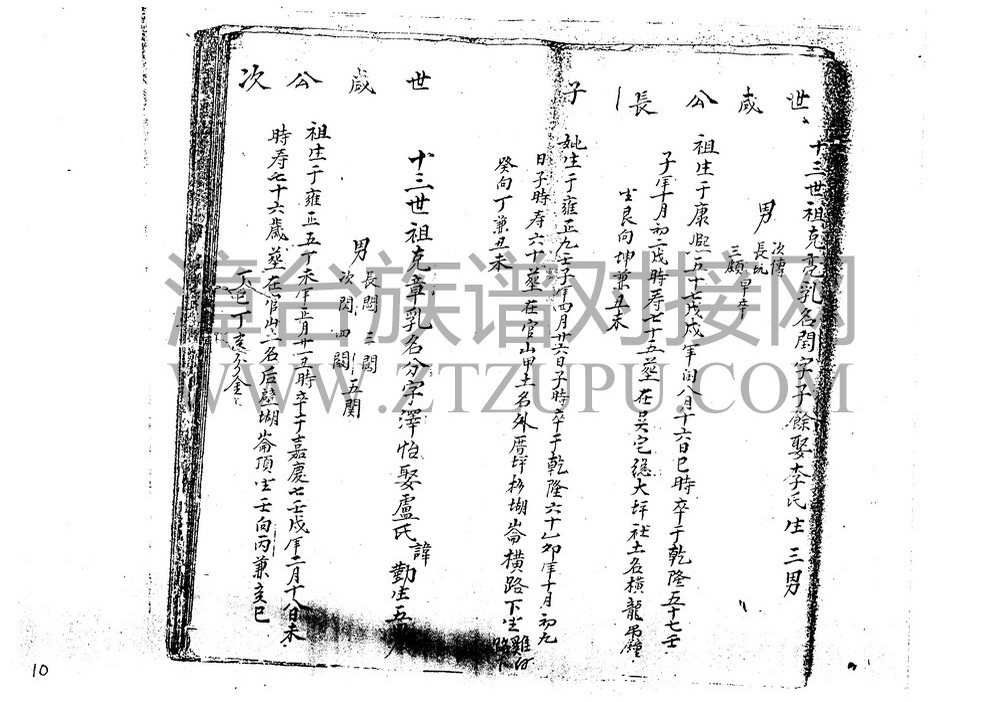 世歲公長子
十三世祖克亮乳名閏字子餘娶李氏生三男
男
長玩
次傳
三頗早卒
祖生于康熙五十七戊戌年閏八月十六日巳時卒于乾隆五十七壬
子年十月初二戌時寿七十五葬在吳宅總大坪社土名橫龍吊鐘
坐艮向坤兼丑未
妣生于雍正九壬子年四月廿六日子時卒于乾隆六十乙卯年十月初九
日子時寿六十葬在官山甲土名外厝坪杉坳崙橫路下坐
癸向丁兼丑未
世歲公次
十三世祖克章乳名分字澤怡娶盧氏諱勤生五男
男
長閣 三閣
次閃 四闊
五関
祖生于雍正五丁未年正月廿五時卒于嘉慶七壬戌年二月十八日未
時寿七十六歲葬在官山土名后壁坳崙頂坐壬向丙兼亥巳
丁巳丁亥分金
漳台族谱对接网
WWW.ZTZUPU.COM
10